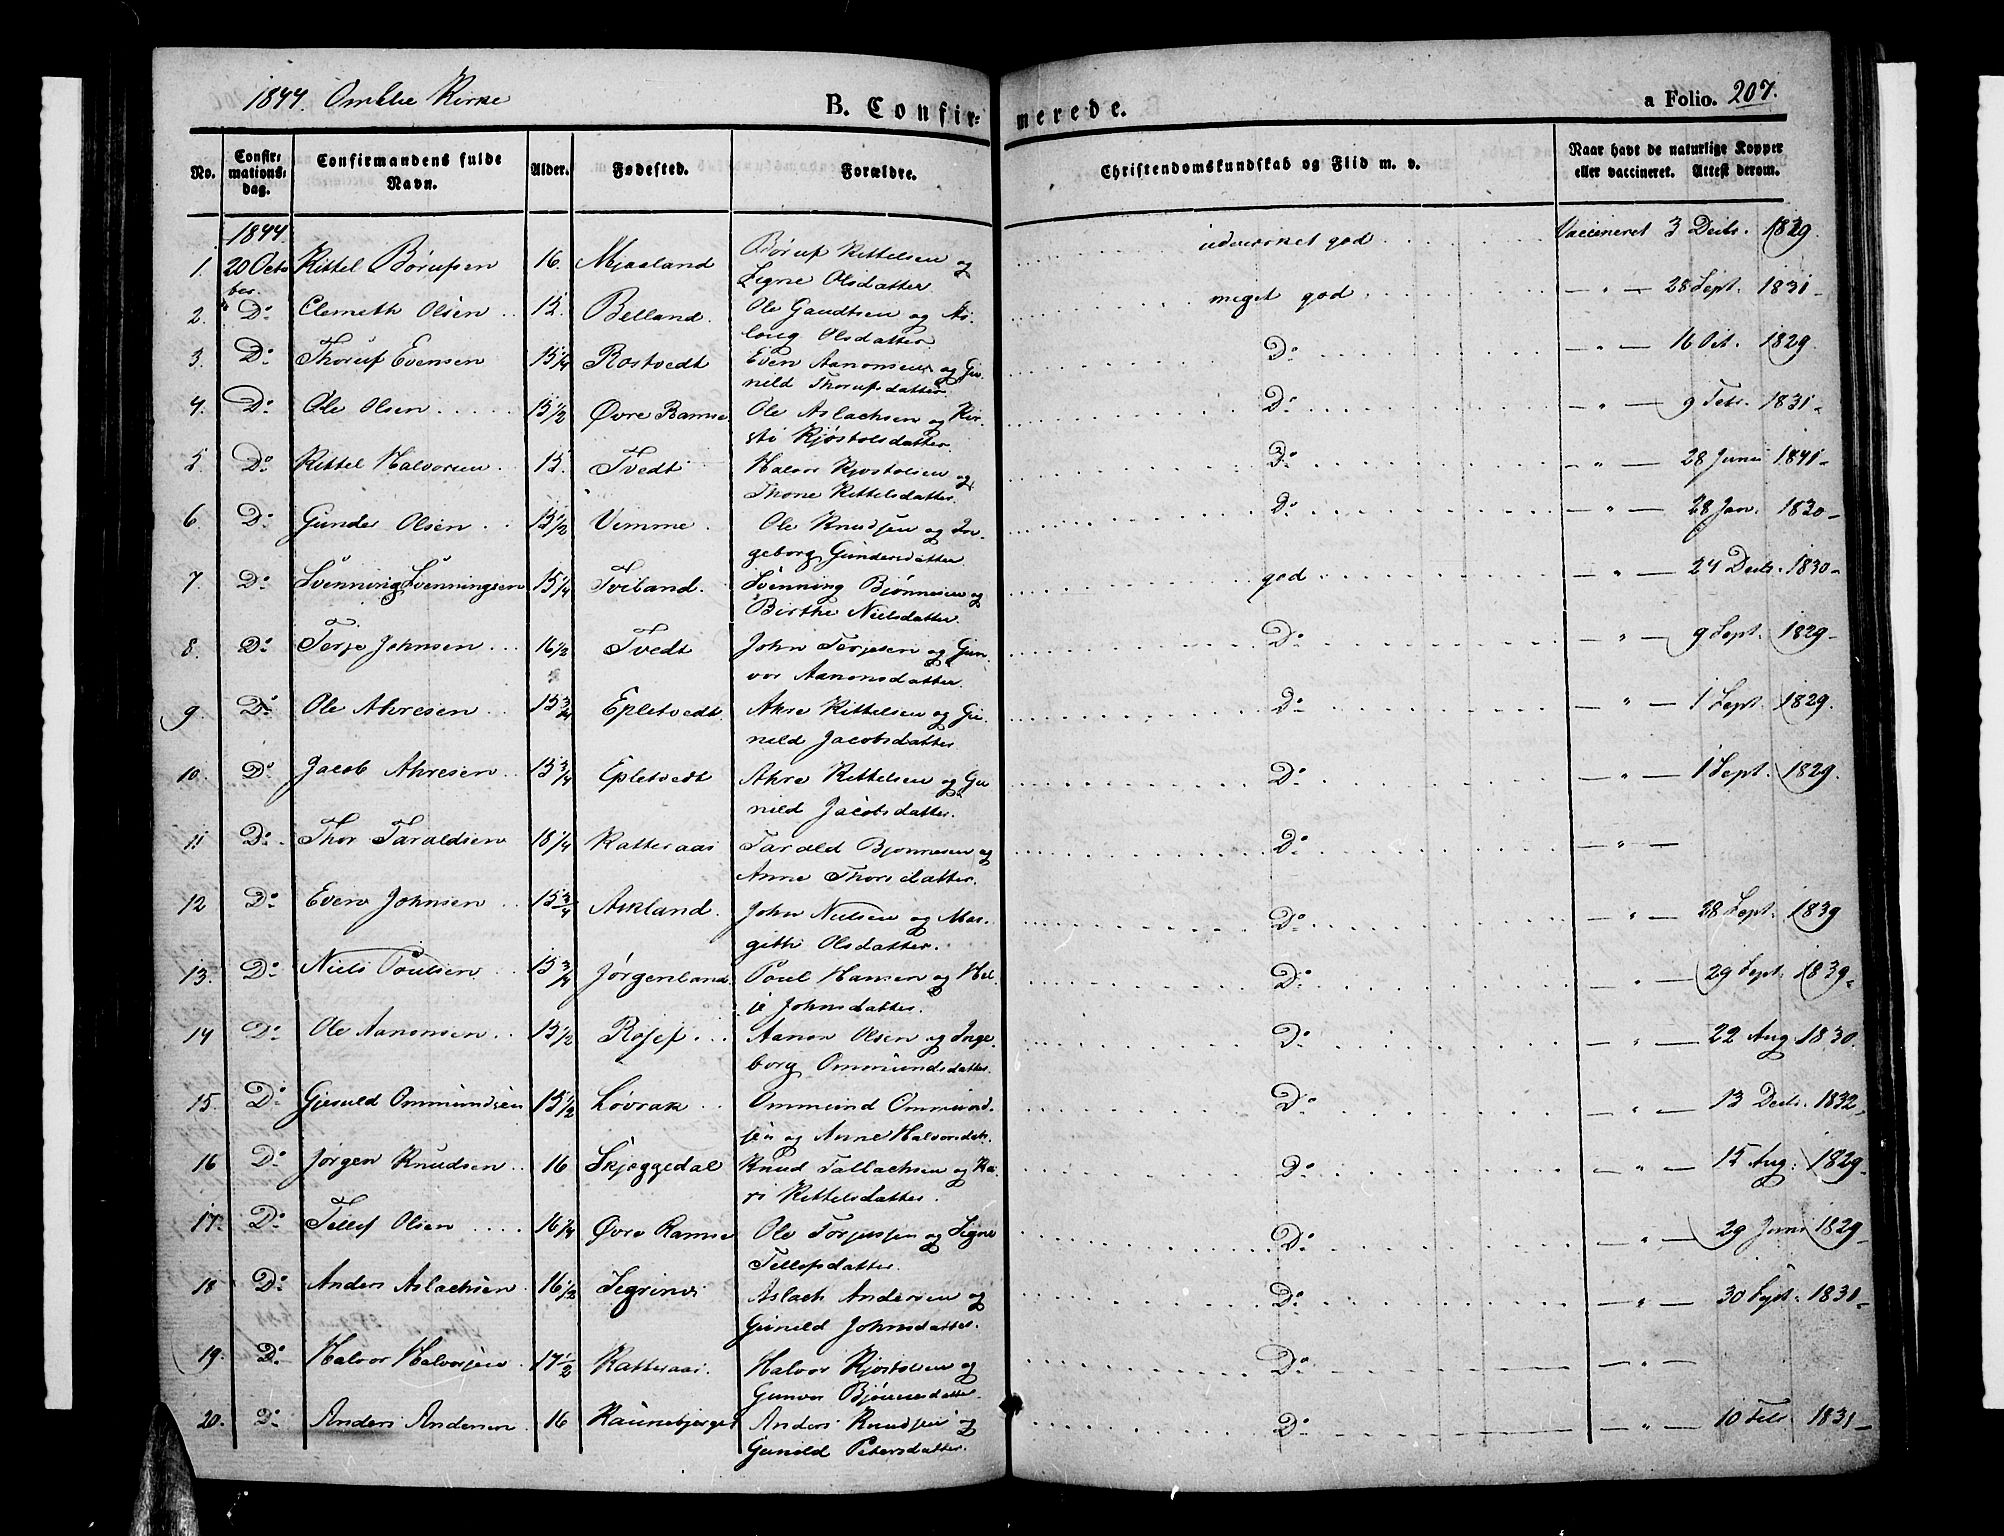 1844. Omblie Kirke
B. Confirmerede.
a Folio. 207.
No. Confirmationsdag. Confirmandens fulde Navn. Alder. Fødested. Forældre. Christendomskundskab og Flid m. v. Naar havt de naturlige Kopper eller vaccineret. Attest derom.
1844.
1. 20 October. Kittel Børufsen 16. Mjaaland Børuf Kittelsen og Signe Olsdatter udmærket god Vaccineret 3 Decbr. 1829.
2. Do Clemeth Olsen 15. Belland. Ole Gundtsen og Asloug Olsdatter meget god — " — 28 Sept. 1831
3. Do Thoruf Evensen 15 1/4 Rostvedt Even Aanonsen og Gunild Thorufsdatter Do — " — 16 Oct. 1829.
4. Do Ole Olsen 15 1/2 Øvre Ramse Ole Aslachsen og Kirsti Kjøstolsdatter Do — " — 9 Febr. 1831
5 Do Kittel Halvorsen 15. Tvedt Halvor Kjøstolsen og Thone Kittelsdatter. Do — " — 28 Juni 1841
6. Do Gunder Olsen 15 1/2 Vimme. Ole Knudsen og Ingeborg Gundersdatter Do — " — 28 Jan. 1830
7. Do Svenning Svenningsen 15 1/4 Tveiland. Svenning Bjønnesen og Birthe Nielsdatter. god — " — 24 Decbr. 1830
8. Do Terje Johnsen 16 1/2 Tvedt John Terjesen og Gunvor Aanonsdatter. Do — " — 9 Sept. 1829
9. Do Ole Akresen 15 3/4 Epletvedt. Akre Kittelsen og Gunild Jacobsdatter Do — " — 1 Sept. 1829.
10. Do Jacob Akresen 15 3/4 Epletvedt Akre Kittelsen og Gunild Jacobsdatter. Do — " — 1 Sept. 1829.
11 Do Thor Taraldsen 18 1/4 Katteraas Tarald Bjønnesen og Anne Thorsdatter. Do — " —
12 Do Even Johnsen 15 3/4 Askland. John Nielsen og Margith Olsdatter. Do — " — 28 Sept. 1839
13. Do Niels Poulsen 15 3/4 Jørgenland. Poul Hansen og Helje Johnsdatter. Do — " — 29 Sept. 1839
14 Do Ole Aanonsen 15 1/2 Rosef Aanon Olsen og Ingeborg Ommundsdatter. Do — " — 22 Aug. 1830.
15. Do Gjeruld Ommundsen 15 1/2 Løvrak Ommund Ommundsen og Anne Halvorsdatr. Do — " — 13 Decbr. 1832
16 Do Jørgen Knudsen 16 Skjeggedal Knud Tallachsen og Kari Kittelsdatter. Do — " — 15 Aug. 1829
17. Do Tellef Olsen 16 1/4 Øvre Ramse Ole Torjussen og Signe Tellefsdatter. Do — " — 29 Juni 1829
18 Do Anders Aslachsen 16 1/2 Aslach Andersen og Gunild Johnsdatter. Do — " — 30 Sept. 1831
19. Do Halvor Halvorsen 17 1/2 Katteraas. Halvor Kjøstolsen og Gunvor Bjønnesdatter. Do — " —
20. Do Anders Andersen 16 Anders Knudsen og Gunild Petersdatter. Do — " — 10 Febr. 1831